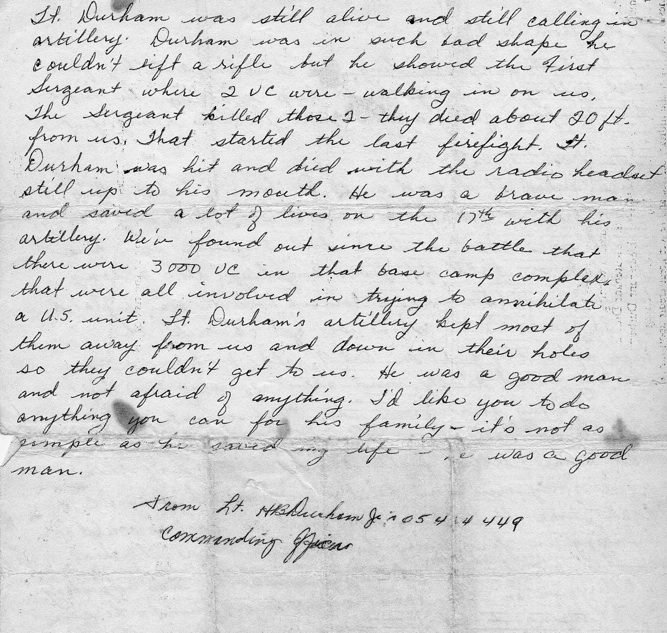 Lt. Durham was still alive and still calling in
artillery. Durham was in such bad shape he
couldn't lift a rifle but he showed the First
Sergeant where 2 VC were - walking in on us.
The Sergeant killed those 2 - they died about 20 ft.
from us. That started the last firefight. Lt.
Durham was hit and died with the radio headset
still up to his mouth. He was a brave man
and saved a lot of lives on the 17th with his
artillery. We've found out since the battle that
there were 3000 VC in that base camp complex
that were all involved in trying to annihilate
a U.S. unit. Lt. Durham's artillery kept most of
them away from us and down in their holes
so they couldn't get to us. He was a good man
and not afraid of anything. I'd like you to do
anything you can for his family - it's not as
simple as he saved my life - he was a good
man.
From Lt. HB Durham Jr
Commanding Officer